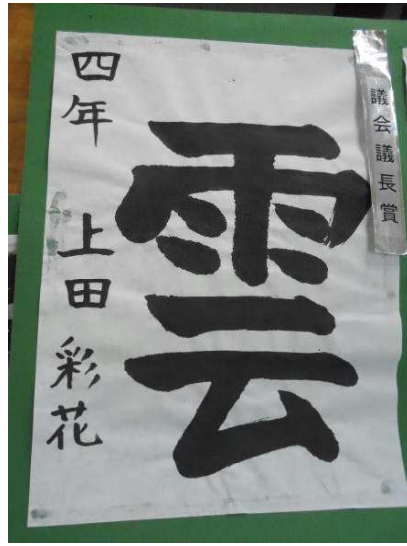 議会議長賞
雲
四年 上田 彩花